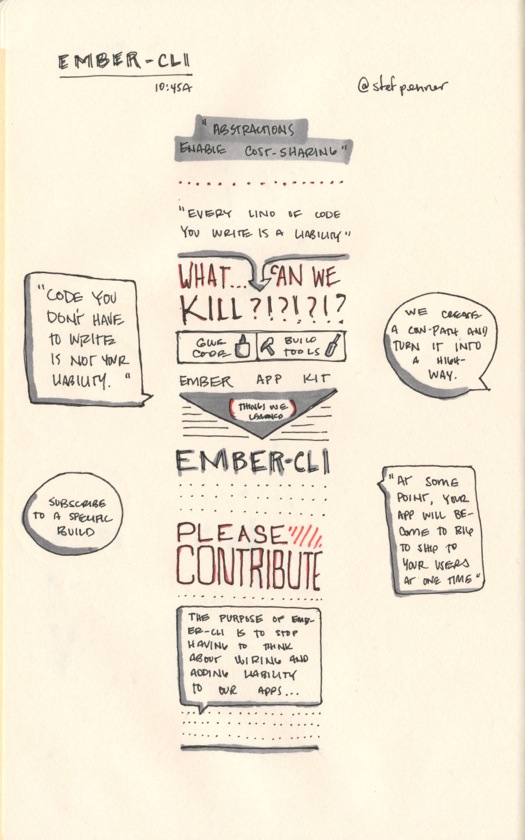 EMBER-CLI
10:45A
@stefpenner
"ABSTRACTIONS
ENABLE COST-SHARING"
"EVERY LINE OF CODE
YOU WRITE IS A LIABILITY"
WHAT... CAN WE
KILL?!?!?!?
GLUE
CODE
BUILD
TOOLS
"CODE YOU
DON'T HAVE
TO WRITE
IS NOT YOUR
LIABILITY."
WE CREATE
A COW-PATH AND
TURN IT INTO
A HIGH-
WAY.
EMBER APP KIT
THINGS WE
LEARNED
EMBER-CLI
SUBSCRIBE
TO A SPECIFIC
BUILD
"AT SOME
POINT, YOUR
APP WILL BE-
COME TO BIG
TO SHIP TO
YOUR USERS
AT ONE TIME"
PLEASE
CONTRIBUTE
THE PURPOSE OF EMB-
ER-CLI IS TO STOP
HAVING TO THINK
ABOUT WIRING AND
ADDING LIABILITY
TO OUR APPS...